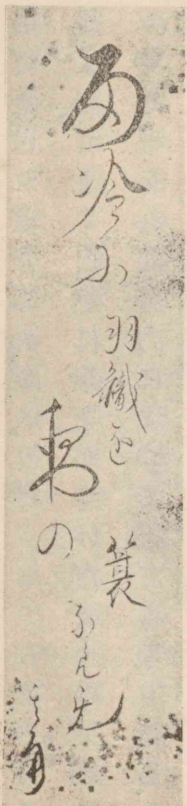 雨冷に
羽織を
夜の
簑
ならん
其角